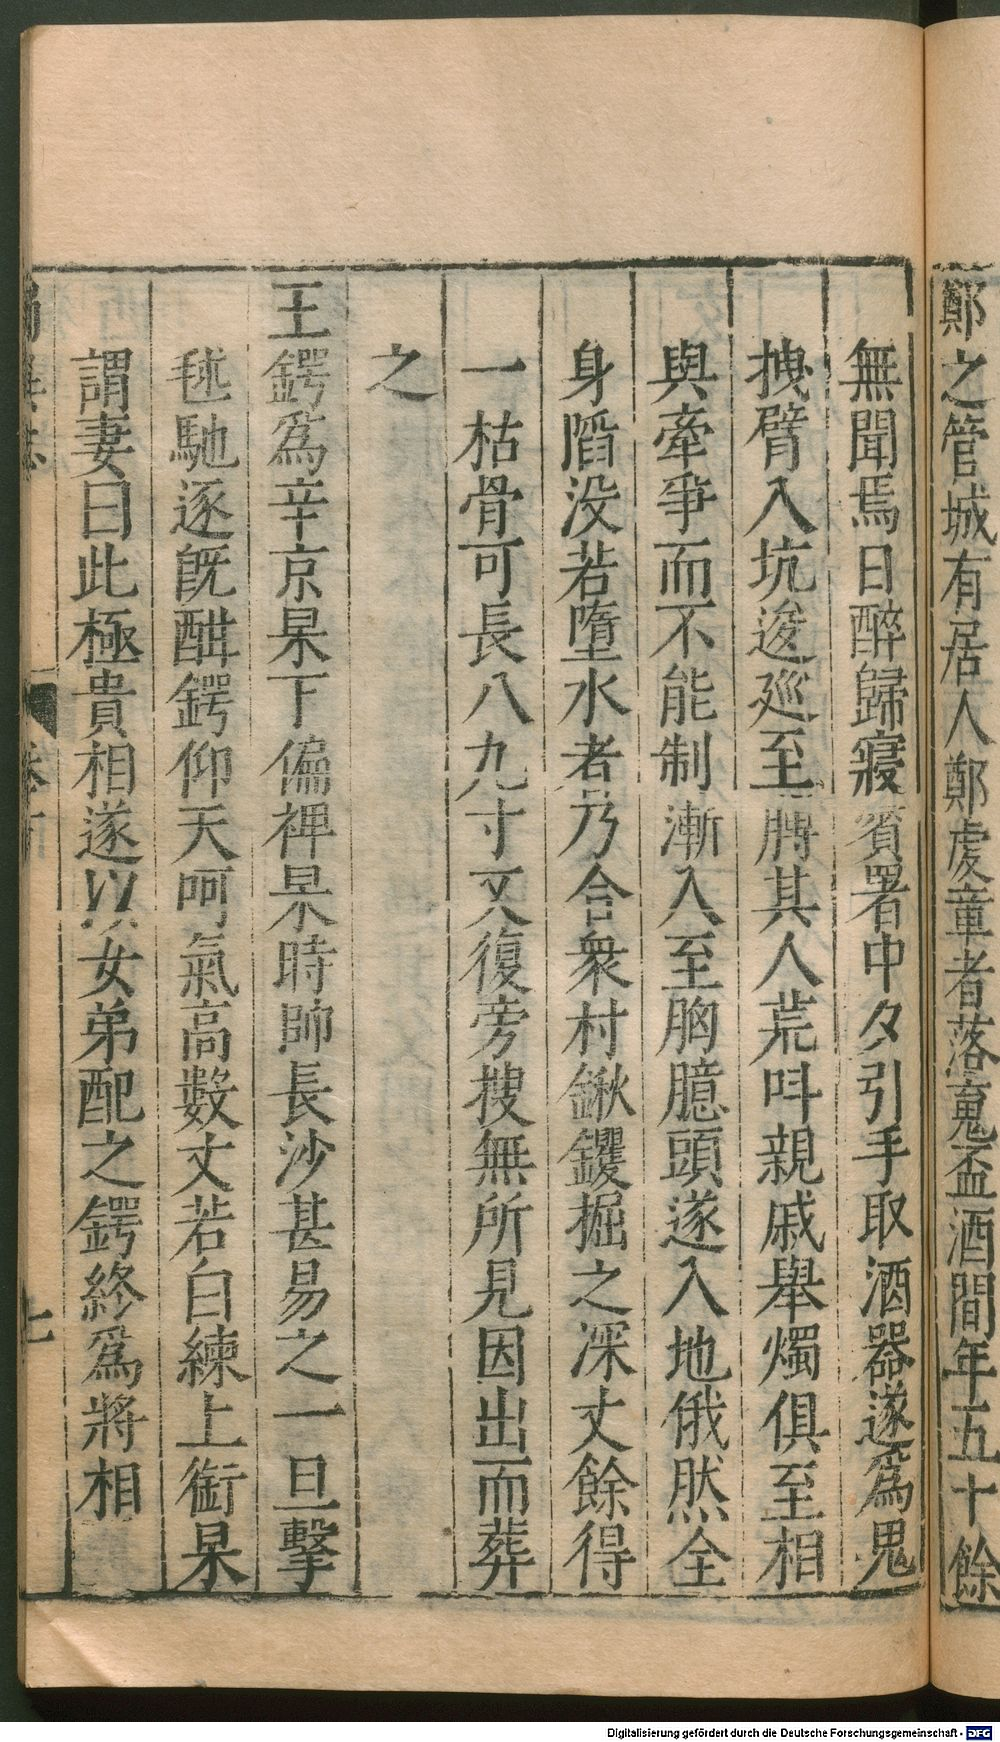 鄭之管城有居人鄭虔章者落䰟盃酒間年五十餘
無聞焉日醉歸寢賓署中夕引手取酒器遂爲鬼
拽臂入坑逡廵至膊其人荒呌親戚舉燭俱至相
與牽爭而不能制漸入至胸臆頭遂入地俄然全
身䧟没若墮水者乃合衆村鍬钁掘之深丈餘得
一枯骨可長八九寸又復旁搜無所見因出而葬
之
王鍔爲辛京杲下偏裨杲時帥長沙甚易之一旦擊
毬馳逐旣酣鍔仰天呵氣高數丈若白練上衝杲
謂妻曰此極貴相遂以女弟配之鍔終爲將相
獨異志
卷下
七
Digitalisierung gefördert durch die Deutsche Forschungsgemeinschaft - DFG